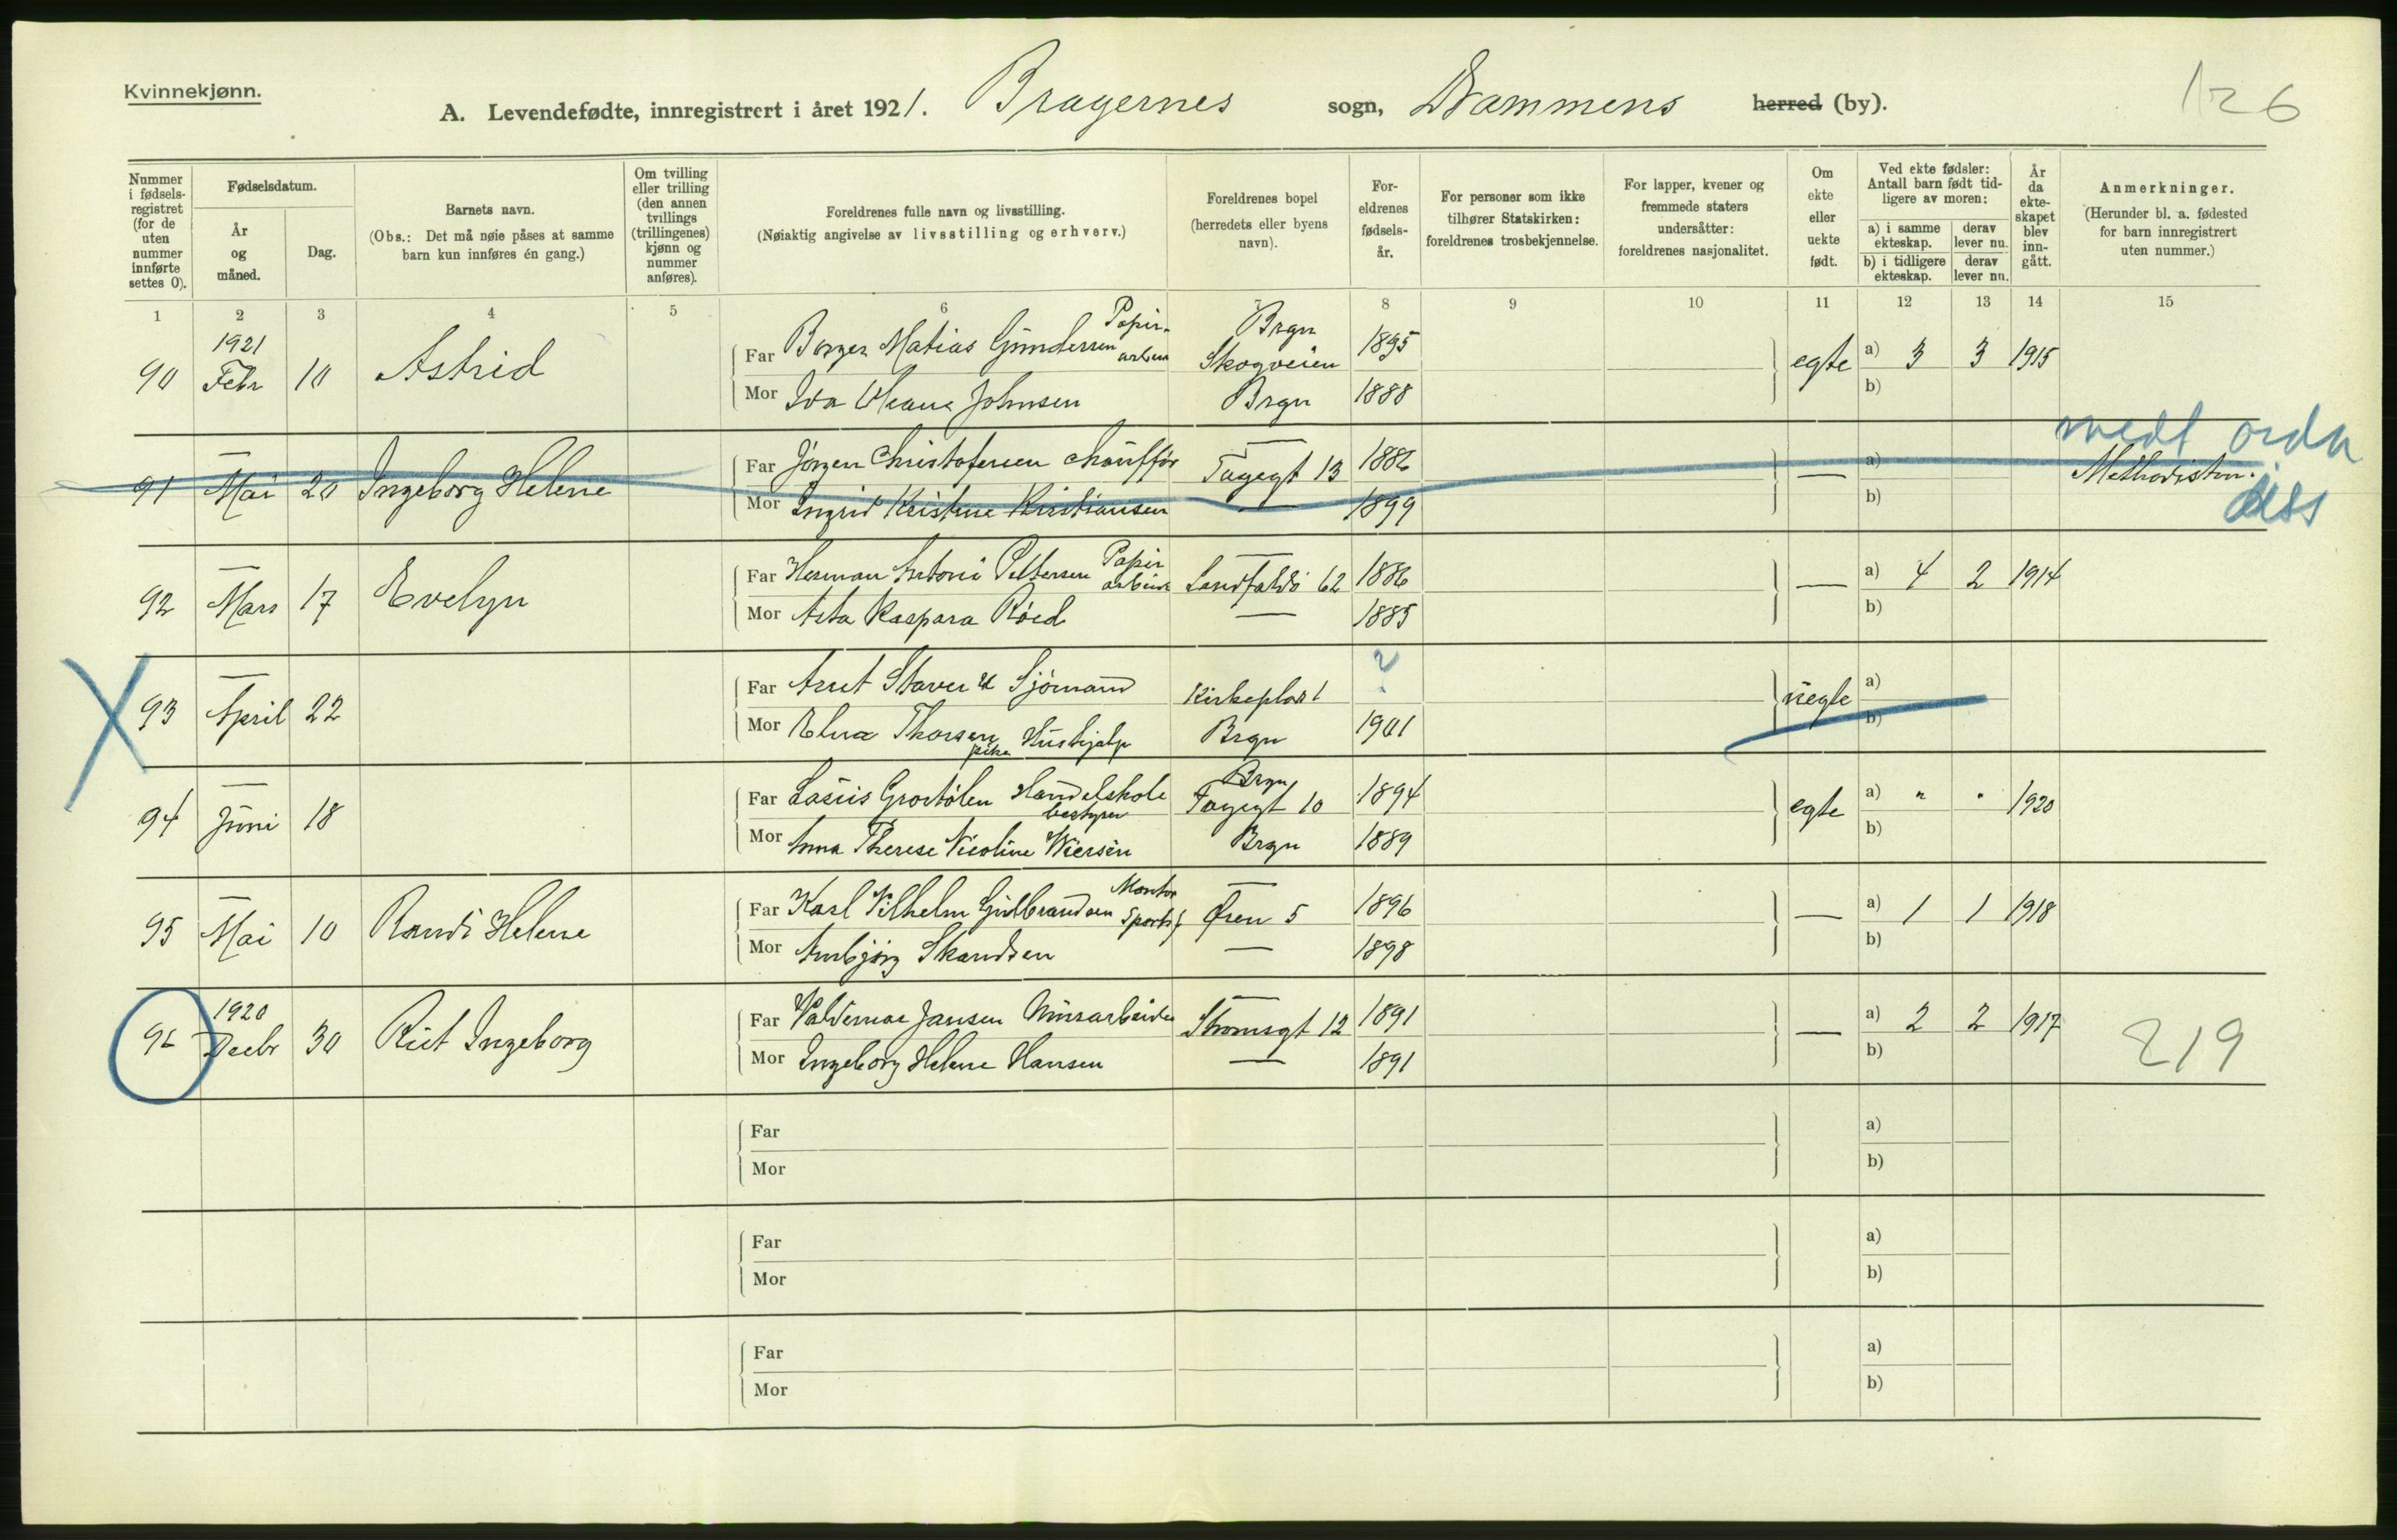 Kvinnekjønn.
126
A. Levendefødte, innregistrert i året 1921. Bragernes sogn, Drammens herred (by).
Nummer i fødselsregistret (for de uten nummer innførte settes 0).
Fødselsdatum.
År og måned.
Dag.
Barnets navn.
(Obs.: Det må nøie påses at samme barn kun innføres én gang.)
Om tvilling eller trilling (den annen tvillings (trillingenes) kjønn og nummer anføres).
Foreldrenes fulle navn og livsstilling.
(Nøiaktig angivelse av livsstilling og erhverv.)
Foreldrenes bopel
(herredets eller byens navn).
Foreldrenes fødselsår.
For personer som ikke tilhører Statskirken: foreldrenes trosbekjennelse.
For lapper, kvener og fremmede staters undersåtter: foreldrenes nasjonalitet.
Om ekte eller uekte født.
Ved ekte fødsler: Antall barn født tidligere av moren:
a) i samme ekteskap.
derav lever nu.
b) i tidligere ekteskap.
derav lever nu.
År da ekteskapet blev inngått.
Anmerkninger.
(Herunder bl. a. fødested for barn innregistrert uten nummer.)
1 2 3 4 5 6 7 8 9 10 11 12 13 14 15
90 1921 Febr 10 Astrid
Far Borger Matias Gundersen Papirarbeid Brgn Skogveien 1895 egte a) 3 3 1915
Mor Iva Oleana Johnsen Brgn 1888 b)
91 — Mai 20 Ingeborg Helene
Far Jörgen Christofersen Chaufför — Tagegt 13 1886 — a)
Mor Ingrid Kristine Kristiansen — 1899 b)
medt orda
Methodistm.
diss
92 — Mars 17 Evelyn
Far Herman Antoni Pettersen Papirarbeid — Landfaldö 62 1886 — a) 4 2 1914
Mor Asta Kaspara Röed — 1885 b)
93 — April 22
Far Arnt Sjömand Kirkeplas 1 ? uegte a)
Mor Elna Thorsen pike Hushjælp Brgn 1901 b)
94 — Juni 18
Far Handelskole bestyrer Brgn Tagegt 10 1894 egte a) " " 1920
Mor Anna Therese Nicoline Wiersen Brgn 1889 b)
95 — Mai 10 Randi Helene
Far Karl Vilhelm Gulbrandsen Montør — Øren 5 1896 — a) 1 1 1918
Mor Annbjörg Skandsen — 1898 b)
96 1920 Decbr 30 Rut Ingeborg
Far Valdemar Jansen Murarbeider — Strømsgt 12 1891 — a) 2 2 1917
Mor Ingeborg Helene Hansen — 1891 b)
219
Far a)
Mor b)
Far a)
Mor b)
Far a)
Mor b)